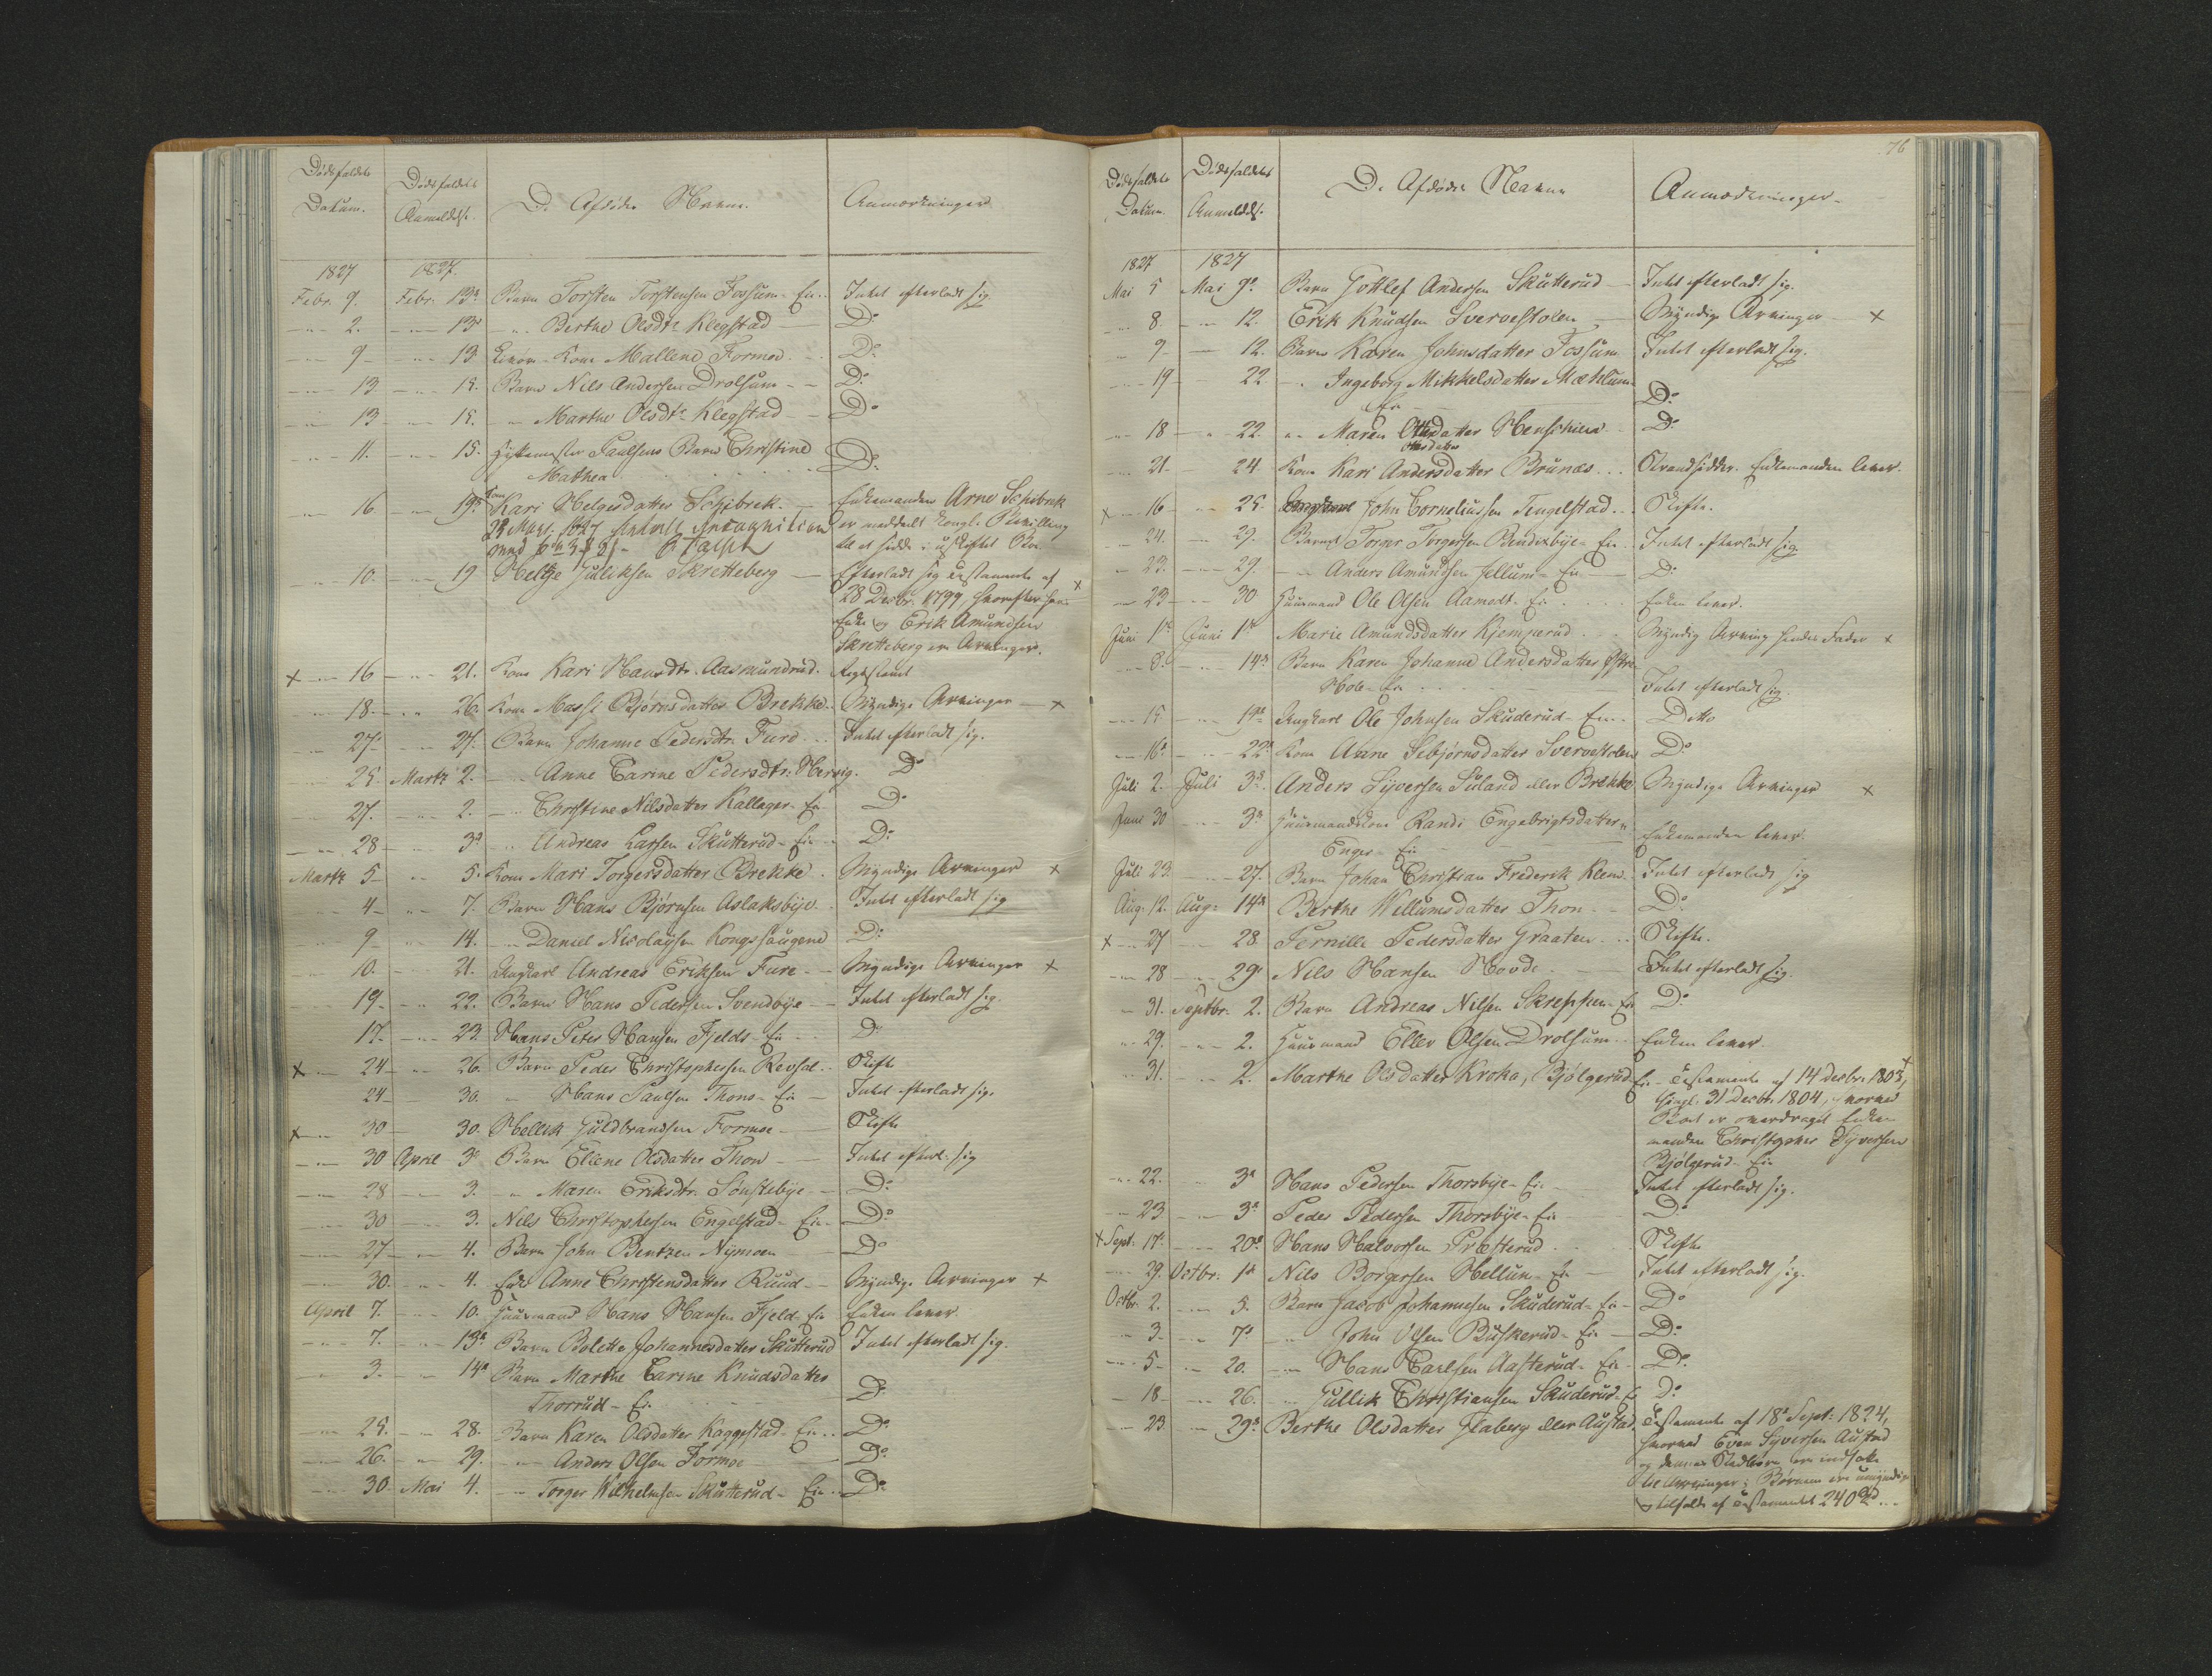 Dødsfaldets Datum. Dødsfaldets Anmeldelse. De Afdødes Navne. Anmærkninger
1827 1827.
Febr. 9. Febr. 13de Barn Torsten Torstensen Fossum - Eie. Intet efterladt sig
2. 13 Berthe Olsdtr Klegstad Do
9 13 Kone Mallene Formoe. Do
13 15. Barn Nils Andersen Drolsum Do
13 15. Marthe Olsdtr Klegstad Do
11. 15. Paulsens Barn Christine
Mathea Do
16 19de Kone Kari Helgesdatter Schibrek. Enkemanden Arne Schibrek
er meddeelt kongl. Bevilling
til at sidde i uskiftet Boe
10. 19 Helge Gulliksen Skretteberg Efterladt sig Testamente af ×
28 Decbr. 1799, hvorefter hans
Enke og Erik Amundsen
Skretteberg ere Arvinger.
× 16 21. Kone Kari Hansdtr. Aasmundrud.
18. 26. Kone Massi Bjørnsdatter Brekke. Myndige Arvinger ×
27 27. Barn Johanne Pedersdtr. Furo Intet efterladt sig.
25. Martz 2. Anne Carine Pedersdtr. Hervig. Do
27. 2. Christine Nilsdatter Kallager - Eie Do
28 3de Andreas Larsen Skutterud - Eie Do
Martz 5 5. Kone Mari Torgersdatter Brekke. Myndige Arvinger ×
4 7. Barn Hans Bjørnsen Aslaksbye. Intet efterladt sig
9 14. Daniel Nicolaysen Kongshaugene Do
10. 21. Ungkarl Andreas Eriksen Fure. Myndige Arvinger ×
19 22. Barn Hans Pedersen Svendbye Intet efterladt sig.
17. 23. Hans Peter Hansen Fjelds - Eie Do
× 24 26. Barn Peder Christophersen Revsal. Skifte
24 30. Hans Paulsen Thons - Eie Intet efterladt sig.
× 30 30. Hellik Guldbrandsen Formoe Skifte
30 April 3de Barn Ellene Olsdatter Thon Intet efterl. sig
28 3. Maren Eriksdtr. Sønstebye Do
30 3. Nils Christophersen Engelstad - Eie Do
27 4. Barn John Bentzen Nymoen Do
30. 4. Enke Anne Christensdatter Ruud Myndige Arvinger ×
April 7. 10. Huusmand Hans Hansen Fjeld - Eie Enken lever.
7. 13de Barn Bolette Johannesdatter Skutterud Intet efterladt sig.
3. 14de Barn Marthe Carine Knudsdatter
Thorrud - Eie Do
25. 28. Barn Karen Olsdatter Kaggestad - Eie Do
26. 29. Anders Olsen Formoe Do
30 Mai 4. Torger Wilhelmsen Skutterud - Eie Do
76
Dødsfaldets Datum. Dødsfaldets Anmeldelse. De Afdødes Navne Anmærkninger.
1827 1827
Mai 5 Mai 9de Barn Gottlef Andersen Skutterud Intet efterladt sig.
8. 12. Erik Knudsen Svervestolen Myndige Arvinger ×
9 12. Barn Karen Johnsdatter Fossum Intet efterladt sig.
19 22 Ingeborg Mikkelsdatter Mæhlum
Eie Do
18 22. Maren Ottersdatter Henschien Do
Ottersdatter
21 24 Kone Kari Andersdatter Brunæs Strandsidder. Enkemanden lever.
× 16 25. John Corneliussen Tengelstad Skifte.
24. 29. Barnet Torger Torgersen Bendixbye - Eie Intet efterladt sig.
23. 29. Anders Amundsen Jellum - Eie Do
23 30 Huusmand Ole Olsen Aamodt - Eie Enken lever.
Juni 1de Juni 1de Marie Amundsdatter Kjemperud Myndig Arving hendes Fader ×
8. 14de Barn Karen Johanne Andersdatter
Hole - Eie Intet efterladt sig.
15. 19de Ungkarl Ole Johnsen Skuderud - Eie Ditto
16de 22de Kone Anne Sebjørnsdatter Svervestolen Do
Juli 2. Juli 3de Anders Syversen Suland eller Brekke Myndige Arvinger ×
Juni 30 3de Huusmandskone Randi Engebrigtsdatter
Enger - Eie Enkemanden lever.
Juli 23 27. Barn Johan Christian Frederik Klem Intet efterladt sig
Aug. 12. Aug: 14de Berthe Willumsdatter Thon Do
× 27 28 Pernille Pedersdatter Graaten Skifte.
28 29de Nils Hansen Hovde Intet efterladt sig.
31. Septbr. 2. Barn Andreas Nilsen Skreppen - Eie Do
29. 2. Huusmand Ellev Olsen Drolsum Enken lever.
31. 2. Marthe Olsdatter Kroka, Bjølgerud Eie - Testamente af 14 Decbr. 1803, ×
31 Decbr. 1804, hvorved
Boet er overdraget Enke-
manden Christopher Syversen
Bjølgerud - Eie
22. 3de Hans Pedersen Thorsbye - Eie Intet efterladt sig.
23 3de Peder Pedersen Thorsbye - Eie Do
× Sept. 17. 20de Hans Halvorsen Præsterud Skifte
29. Octbr: 1de Nils Borgersen Hellum - Eie Intet efterladt sig.
Octbr. 2. 5. Barn Jacob Johannesen Skuderud - Eie Do
3. 7de John Olsen Buskerud - Eie Do
5 20. Hans Carlsen Aasterud - Eie Do
18 26. Gullik Christiansen Skuderud - E Do
23 29de Berthe Olsdatter Flaberg eller Austad Testamente af 18de Sept: 1824,
hvorved Even Syversen Austad
og dennes Stedbørn ere indsatte
til Arvinger; Børnene ere umyndige
tilfalde af Testamentet 240